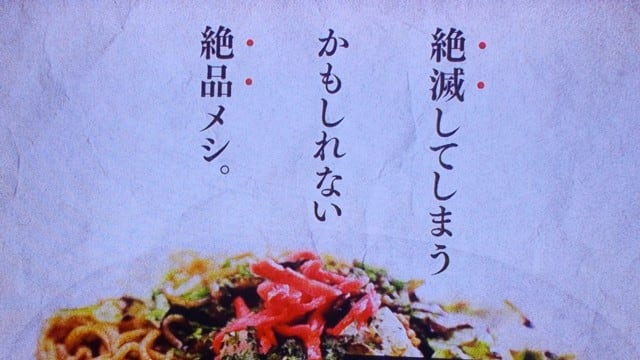 絶滅してしまう
かもしれない
絶品メシ。